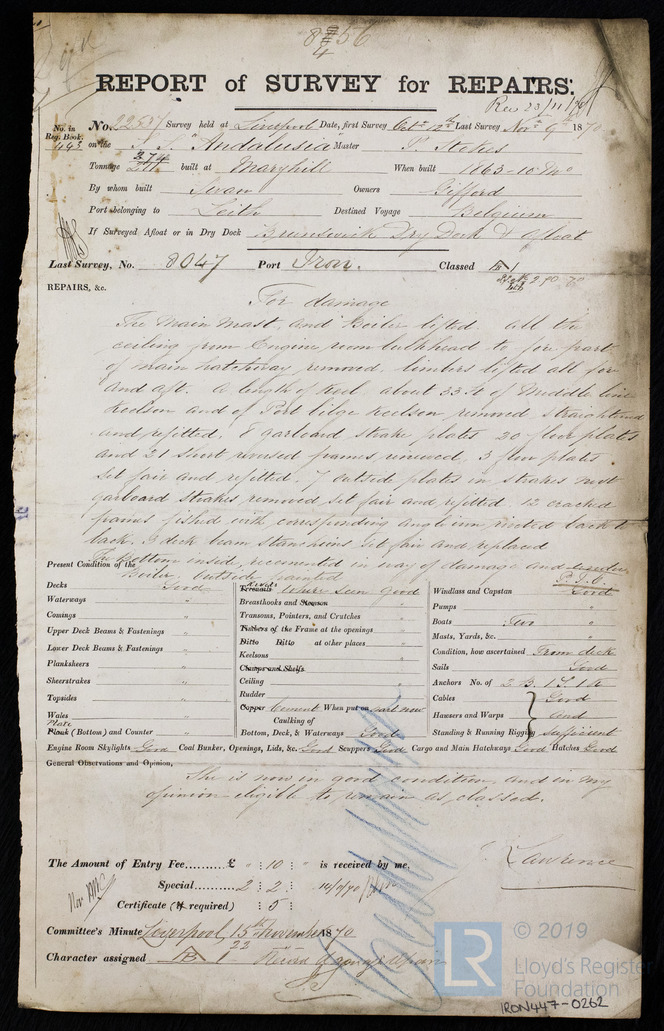 8 56
4
REPORT of SURVEY for REPAIRS.
Rec 23/11/70
No. in Reg. Book. 493
No. 22557 Survey held at Liverpool Date, first Survey Octr 12th Last Survey Novr 9th 1870
on the S.S. Andalusia Master P. Stokes
Tonnage 274 built at Maryhill When built 1863-10 Mo
By whom built Swan Owners Gifford
Port belonging to Leith Destined Voyage Belgium
If Surveyed Afloat or in Dry Dock Brunswick Dry Dock & afloat
Last Survey, No. 8047 Port Iron. Classed B 1
REPAIRS, &c.
For damage
The Main Mast, and Boiler lifted. all the
ceiling from Engine room bulkhead to fore part
of main hatchway removed. limbers lifted all fore
and aft. a length of keel, about 33 ft of Middle line
Keelson and of Port bilge keelson removed straightened
and refitted. 8 garboard strake plates 20 floor plates
and 21 short reversed frames renewed. 3 floor plates
set fair and refitted. 7 outside plates in strakes next
garboard strakes removed set fair and refitted. 12 cracked
frames fished with corresponding angle iron riveted back to
back. 3 deck beam stanchions set fair and replaced
The bottom inside, recemented in way of damage and
Boiler outside painted P.T.O.
Present Condition of the
Decks Good
Waterways "
Comings "
Upper Deck Beams & Fastenings "
Lower Deck Beams & Fastenings "
Planksheers "
Sheerstrakes "
Topsides "
Wales "
Plate
Plank (Bottom) and Counter "
Rivets
Treenails Where seen good
Breasthooks and Stemson "
Transoms, Pointers, and Crutches "
Timbers of the Frame at the openings "
Ditto Ditto at other places "
Keelsons "
Clamps and Shelfs "
Ceiling "
Rudder "
Copper Cement When put on part now
Caulking of
Bottom, Deck, & Waterways Good
Windlass and Capstan Good
Pumps "
Boats Two "
Masts, Yards, &c. "
Condition, how ascertained From deck
Sails Good
Anchors No. of 2 B. 1 S 1 K
Cables Good
Hawsers and Warps and
Standing & Running Rigging Sufficient
Engine Room Skylights Good Coal Bunker, Openings, Lids, &c. Good Scuppers Good Cargo and Main Hatchways Good Hatches Good
General Observations and Opinion,
She is now in good condition, and in my
opinion eligible to remain as classed.
The Amount of Entry Fee..........£ " : 10 : " is received by me,
Lawrence
Special.......... 2 : 2 :
Certificate (if required) : 5 :
Committee's Minute Liverpool, 15th November 1870
Character assigned B 1
LR © 2019
Lloyd's Register
Foundation
IRON447-0262